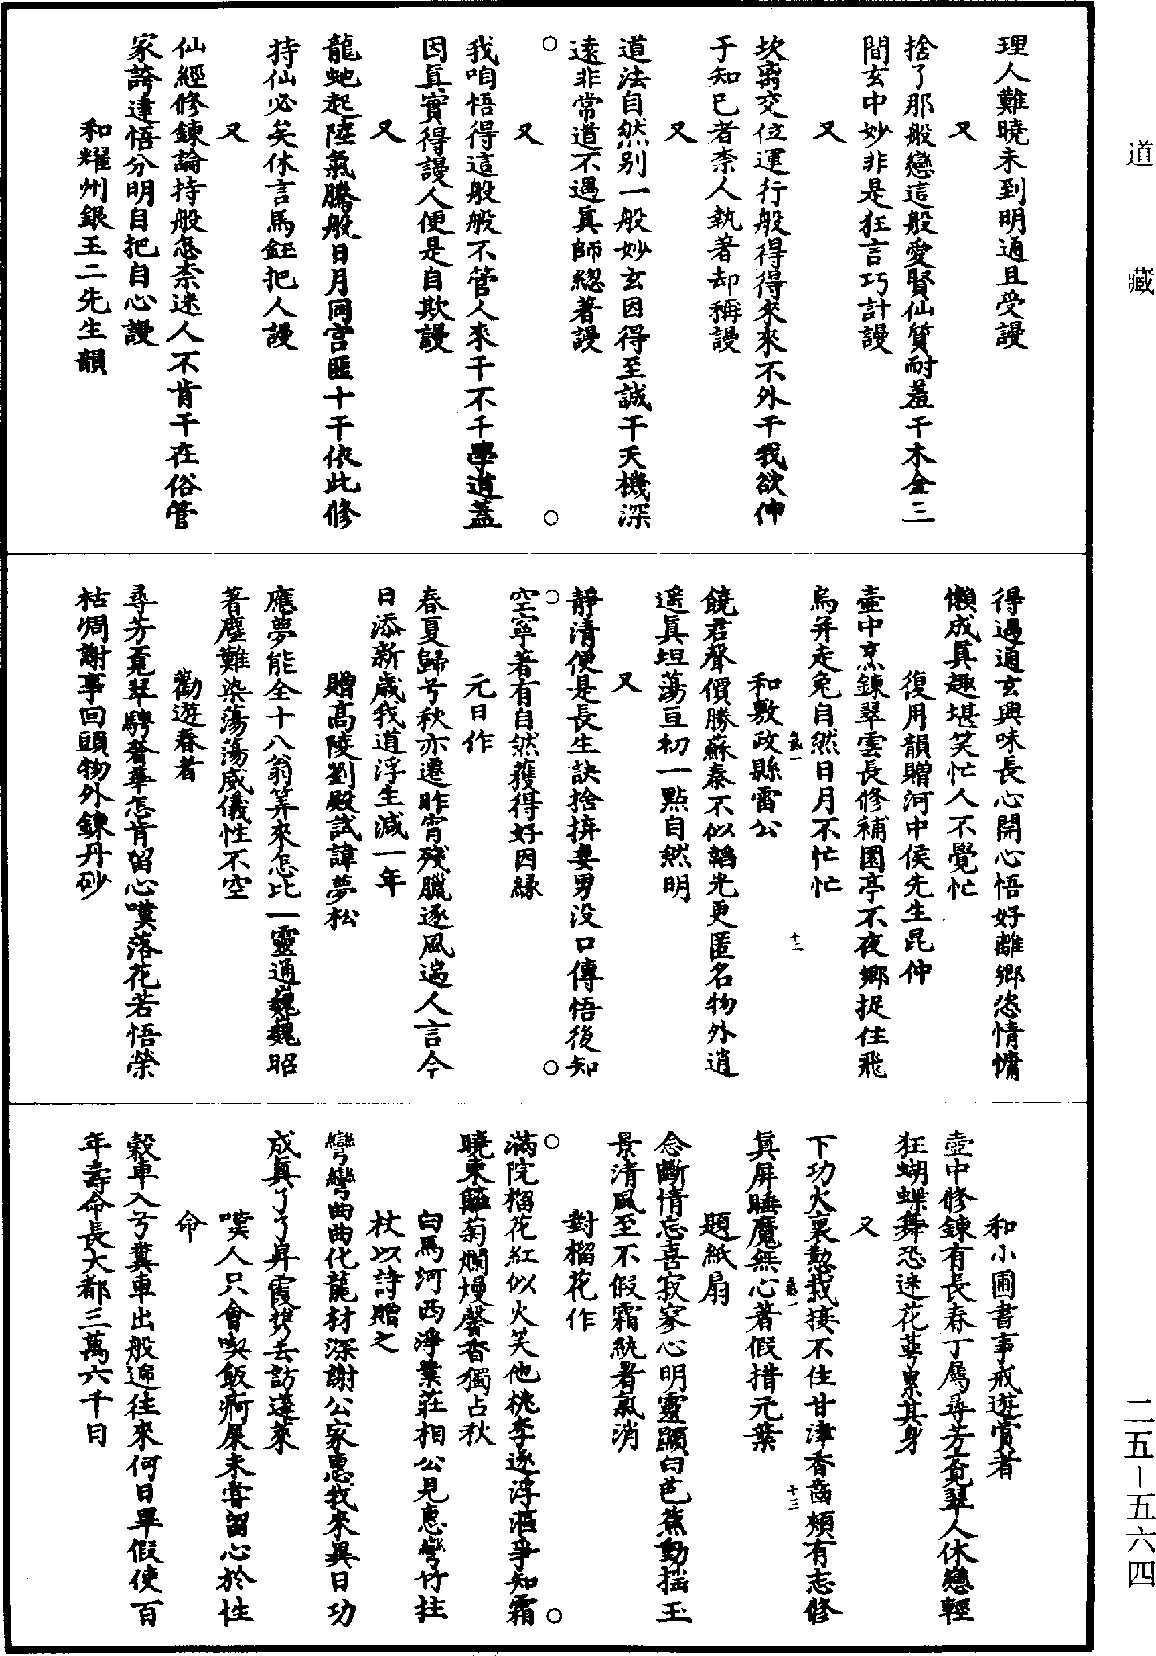 道藏
理人難曉未到明通且受謾
又
捨了那般戀這般愛賢仙質耐羞干木金三
間玄中妙非是狂言巧計謾
又
坎离交位運行般得得來來不外干我欲伸
于知已者柰人執著却稱謾
又
道法自然别一般妙玄因得至誠干天機深
遠非常道不遇真師緫著謾
又
我咱悟得這般般不管人來干不干學道蓋
因真實得謾人便是自欺謾
又
龍虵起陸氣騰般日月同宫匝十干依此修
持仙必矣休言馬鈺把人謾
又
仙經修鍊論持般怎柰迷人不肯干在俗管
家誇達悟分明自把自心謾
和耀州銀王二先生韻
得遇通玄興味長心開心悟好離鄉恣情慵
懶成真趣堪笑忙人不覺忙
復用韻贈河中侯先生昆仲
壺中烹鍊翠雲長修補園亭不夜鄉捉住飛
烏并走兔自然日月不忙忙
和敷政縣雷公
饒君聲價勝蘇秦不似韜光更匿名物外逍
遥真坦蕩亘初一點自然明
又
靜清便是長生訣捨拚妻男没口傳悟後知
空寧著有自然獲得好因緣
元日作
春夏歸兮秋亦遷昨宵殘臘逐風遄人言今
日添新歲我道浮生減一年
贈高陵劉殿試諱夢松
應夢能全十八翁筭來怎比一靈通巍巍昭
著塵難染蕩蕩威儀性不空
勸遊春者
尋芳覓翠騁奢華怎肯留心嘆落花若悟榮
枯凋謝事回頭物外鍊丹砂
和小圃書事戒遊賞者
壺中修鍊有長春丁屬尋芳覓翠人休戀輕
狂蝴蝶舞恐迷花萼喪其身
又
下功火裏懃栽接不住甘津香齒頰有志修
真屏睡魔無心著假措元葉
題紙扇
念斷情忘喜寂寥心明靈顯白芭蕉動揺玉
景清風至不假霜紈暑氣消
對榴花作
滿院榴花紅似火笑他桃李逐浮漚爭知霜
曉東籬菊爛熳馨香獨占秋
白馬河西淨業莊相公見惠彎竹拄
杖以詩贈之
彎彎曲曲化龍材深謝公家惠我來異日功
成真了了昇霞携去訪蓬萊
嘆人只會喫飯痾屎未嘗留心於性
命
穀車入兮糞車出般遞往來何日畢假使百
年壽命長大都三萬六千日
二五－五六四